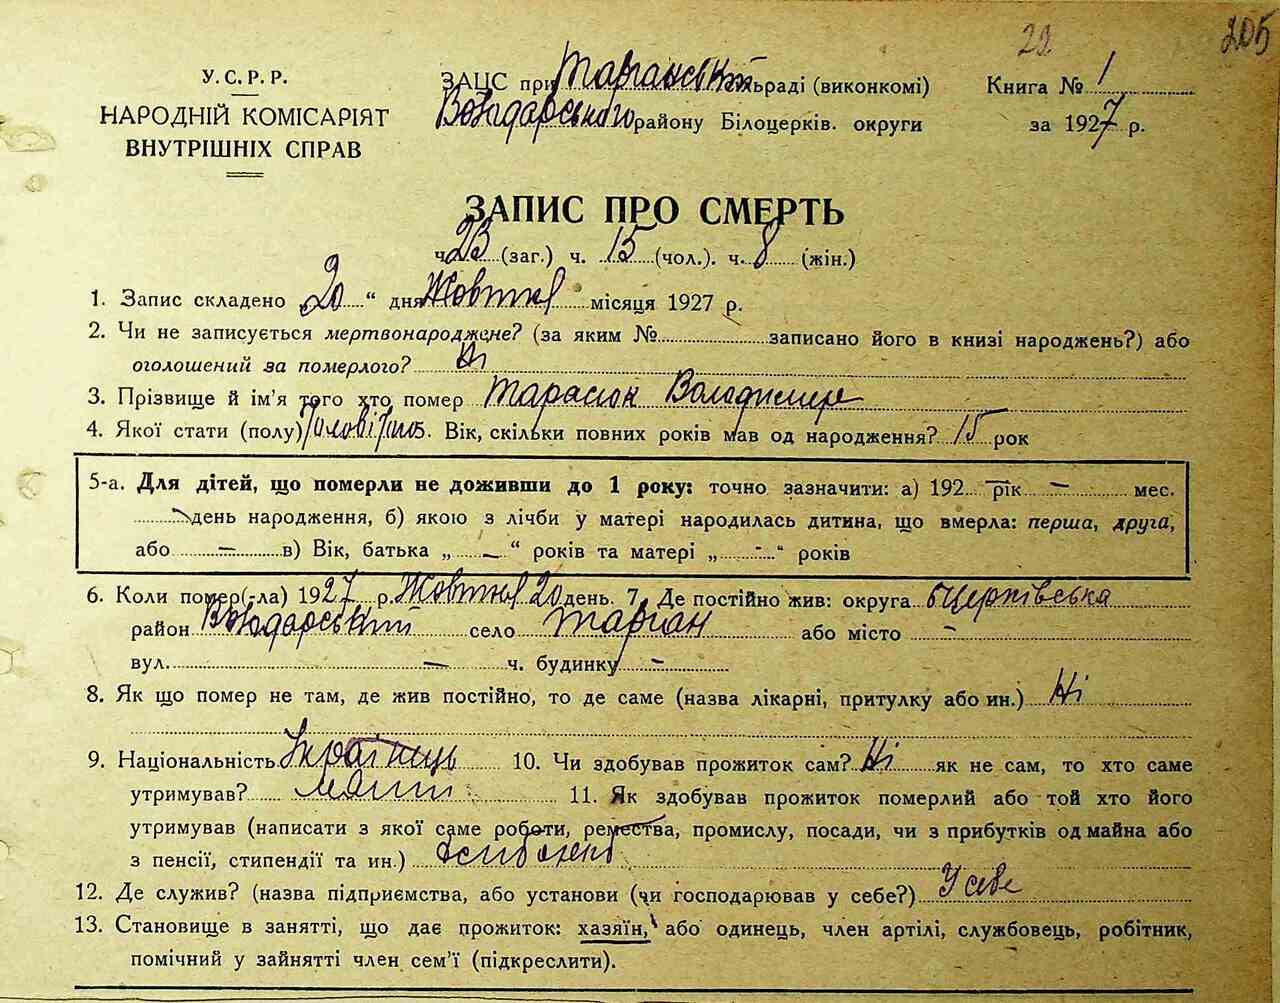 22 205
У.С.Р.Р.
НАРОДНІЙ КОМІСАРІЯТ
ВНУТРІШНІХ СПРАВ
ЗАЦС при Тарганській сільраді (виконкомі)
Володарського району Білоцерків. округи
Книга № 1
за 1927 р.
ЗАПИС ПРО СМЕРТЬ
ч. 23 (заг.) ч. 15 (чол.). ч. 8 (жін.)
1. Запис складено „20“ дня Жовтня місяця 1927 р.
2. Чи не записується мертвонароджене? (за яким № записано його в книзі народжень?) або
оголошений за померлого? Ні
3. Прізвище й ім'я того хто помер Тарасюк Володимир
4. Якої стати (полу) Чоловіч. Вік, скільки повних років мав од народження? 15 рок
5-а. Для дітей, що померли не доживши до 1 року: точно зазначити: а) 192 — рік — мес.
— день народження, б) якою з лічби у матері народилась дитина, що вмерла: перша, друга,
або — в) Вік, батька „ — “ років та матері „ — “ років
6. Коли помер(-ла) 1927 р. Жовтня 20 день. 7. Де постійно жив: округа БЦерківська
район Володарський село Тарган або місто —
вул. — ч. будинку —
8. Як що помер не там, де жив постійно, то де саме (назва лікарні, притулку або ин.) Ні
9. Національність Українець 10. Чи здобував прожиток сам? Ні як не сам, то хто саме
утримував? Мати 11. Як здобував прожиток померлий або той хто його
утримував (написати з якої саме роботи, ремества, промислу, посади, чи з прибутків од майна або
з пенсії, стипендії та ин.)
12. Де служив? (назва підприємства, або установи (чи господарював у себе?) У себе
13. Становище в занятті, що дає прожиток: хазяїн, або одинець, член артілі, службовець, робітник,
помічний у зайнятті член сем'ї (підкреслити).